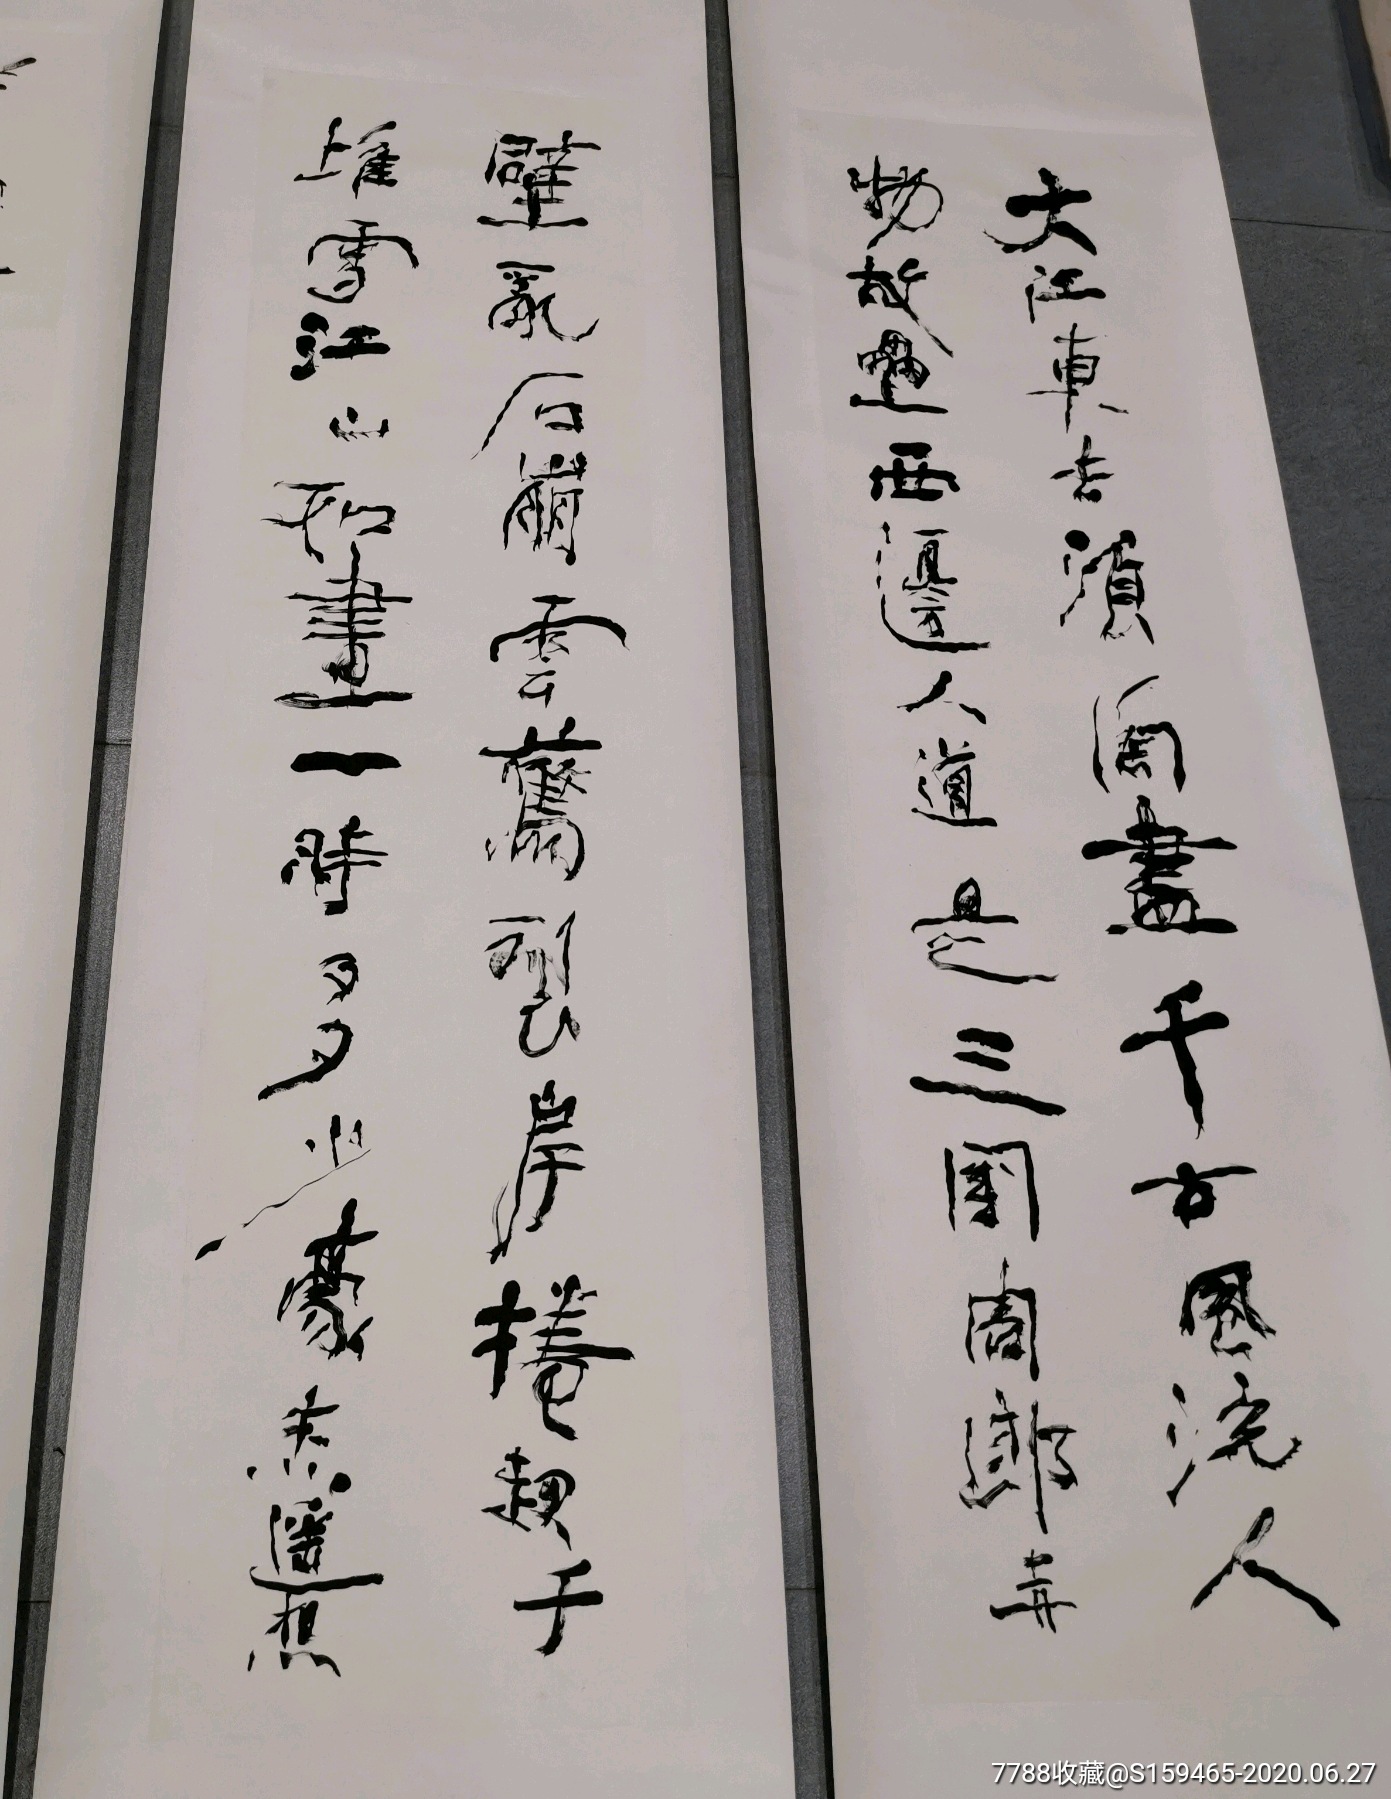 大江東去湏淘盡千古風流人
物故壘西邊人道是三國周郎赤
壁亂石崩雲驚裂岸捲千
堆雪江山如畫一時多少豪杰遙想
7788收藏@S159465-2020.06.27